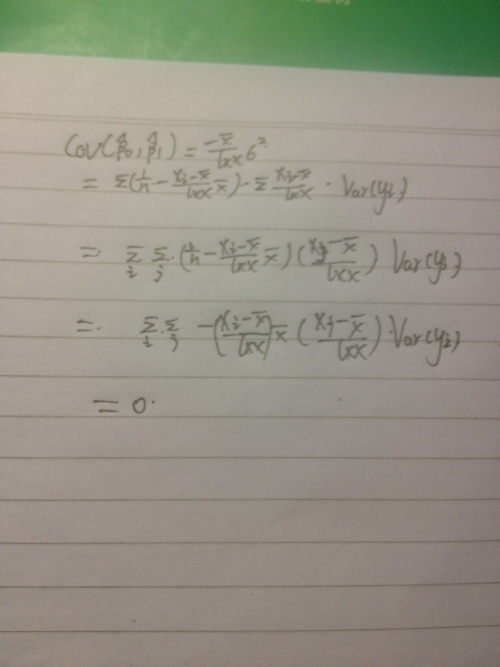 Cov(β̂₀, β̂₁) = -x̄/lxx 6²
= Σ(1/n - xᵢ-x̄/lxx x̄) - Σ xᵢ-x̄/lxx · Var(yᵢ)
= Σᵢ Σⱼ · (1/n - xᵢ-x̄/lxx x̄) (xⱼ-x̄/lxx) Var(yᵢ)
= · Σᵢ · Σⱼ -(xᵢ-x̄/lxx) x̄ (xⱼ-x̄/lxx) · Var(yᵢ)
= 0 ·